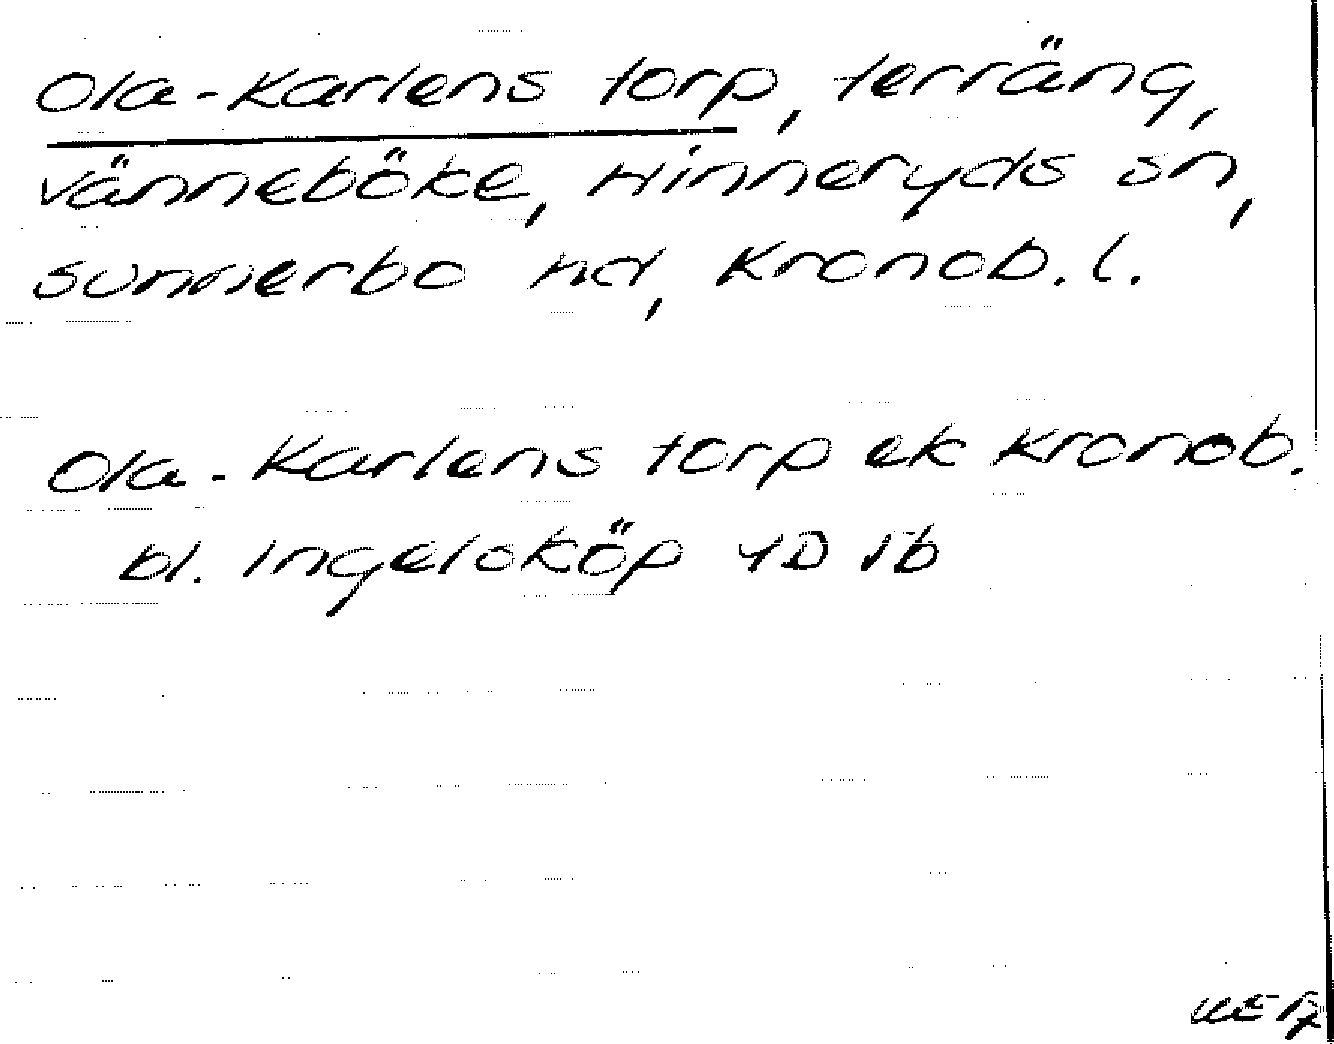 Ola-Karlens torp, terräng,
Vänneböke, Hinneryds sn,
Sunnerbo hd, Kronob. l.
Ola-Karlens torp ek Kronob.
bl. Ingelsköp 4D 5b